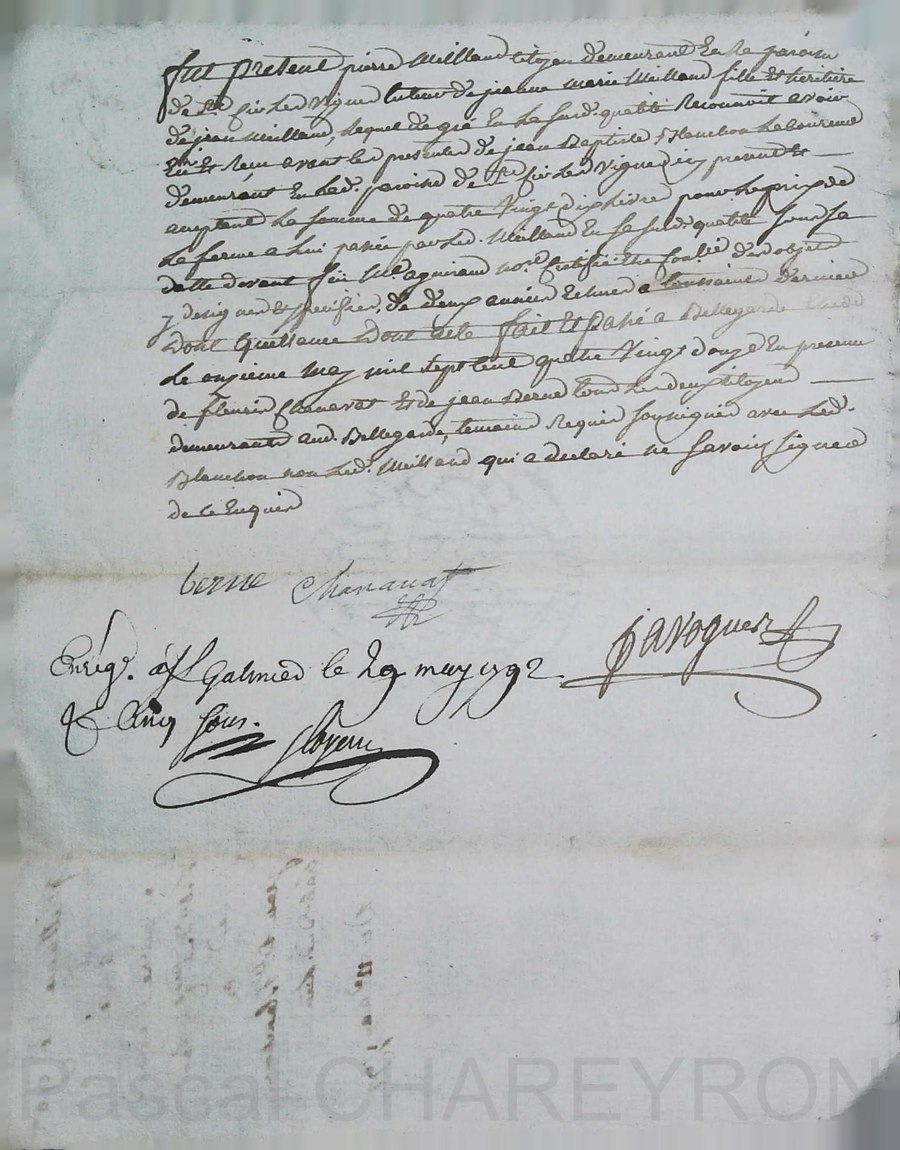 fut present pierre Meilland citoyen demeurant En la paroisse
de St. Cir les Vignes tuteur de jeanne Marie Meilland fille et heritiere
de jean Meilland, lequel de gré En la susd. qualité Reconnoit avoir
Eu et Reçu avant les presentes de jean Baptiste Blanchon laboureur
demeurant En lad. paroisse de St. Cir les Vignes icy present et
aceptant la somme de quatre Vingt dix livres pour le prix de
la ferme a lui passée par led. Meilland En sa susd. qualité sous sa
datte devant feu Me. aguiraud nore. des objets
y designés et specifiés, de deux années Echues a toussaints derniere
Dont quittance Dont acte fait et passé a Bellegarde Etude
le onzieme may mil sept cent quatre Vingt douze En presence
de fleurie Chanavat et de jean Berne tous les deux citoyens
demeurants aud. Bellegarde, temoins Requis soussignés avec led.
Blanchon non led. Meilland qui a declaré ne savoir signer
de ce Enquis
berne Chanavat
javogues
Enrég. à St Galmier le 29 may 1792
R. Cinq sous.
Pascal CHAREYRON